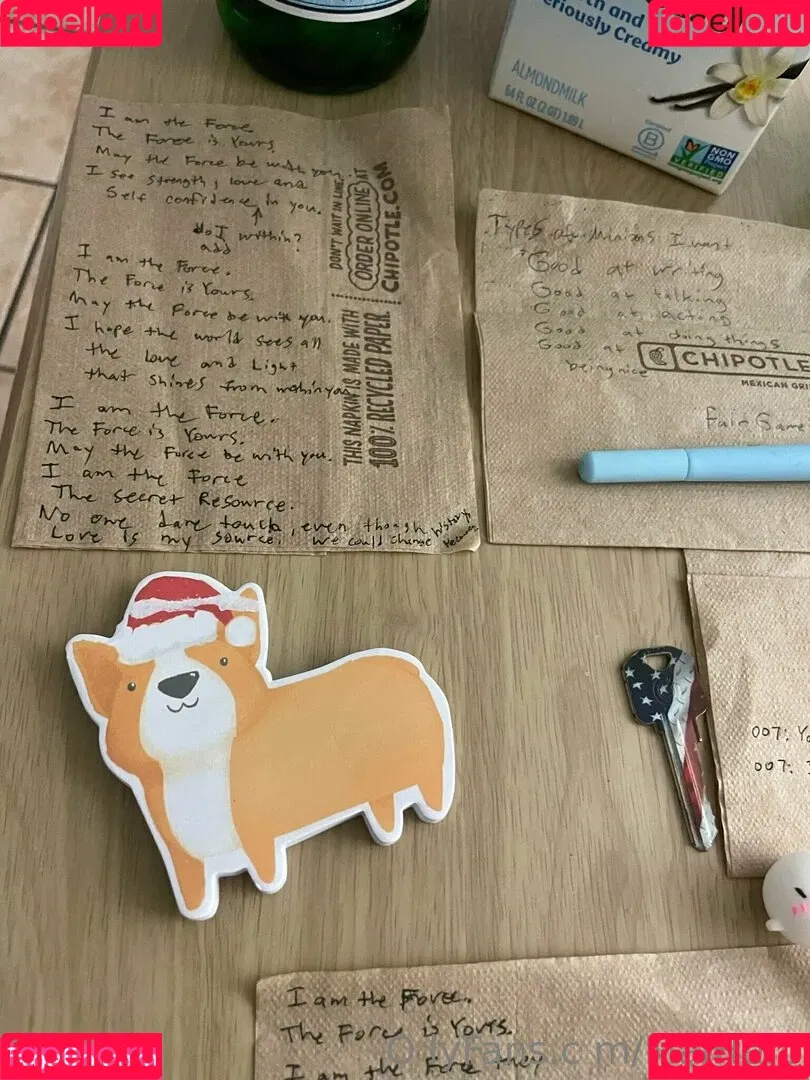 fapello.ru
fapello.ru
oth and
eriously Creamy
ALMONDMILK
64 FL OZ (2 QT) 1.89 L
B
NON
GMO
VERIFIED
I am the Force.
The Force is Yours.
May the Force be with you.
I see strength, love and
Self confidence in you.
do I
add
within?
I am the Force.
The Force is Yours.
May the Force be with you.
I hope the world sees all
the love and Light
that shines from within you.
I am the Force.
The Force is Yours.
May the Force be with you.
I am the Force
The Secret Resource.
No one dare touch, even though
Love is my source. We could change history
DON'T WAIT IN LINE,
ORDER ONLINE AT
CHIPOTLE.COM
THIS NAPKIN IS MADE WITH
100% RECYCLED PAPER
Types of Minions I want
Good at writing
Good at talking
Good at acting
Good at doing things
Good at
being nice
CHIPOTLE
MEXICAN GRI
Fair Game
007: Yo
007:
I am the Force.
The Force is Yours.
I am the Force they
OnlyFans.c m/
fapello.ru
fapello.ru